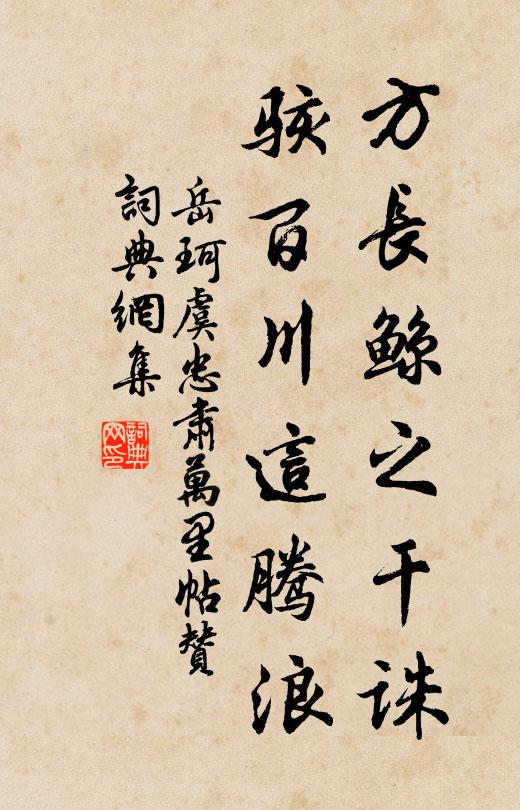 方長鲸之干誅
駭百川這騰浪
岳珂虞忠肅萬里帖贊
詞典網集
詞典網印